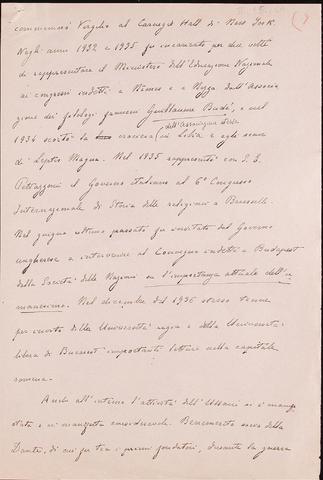 commemorò Virgilio al Carnegie Hall di New York.
Negli anni 1932 e 1935 fu incaricato per due volte
di rappresentare il Ministero dell'Educazione Nazionale
ai congressi indetti a Nîmes e a Nizza dall'Associa
zione dei filologi francesi Guillaume Budé, e nel
1934 scortò la crociera dell'Associazione stessa in Libia e agli scavi
di Leptis Magna. Nel 1935 rappresentò con S. E.
Pettazzoni il Governo italiano al 6° Congresso
Internazionale di Storia delle religioni a Bruxelles.
Nel giugno ultimo passato fu invitato dal Governo
ungherese a intervenire al Convegno indetto a Budapest
dalla Società delle Nazioni su l'importanza attuale dell'u
manesimo. Nel dicembre del 1936 stesso tenne
per invito della Università regia e della Università
libera di Bucarest importanti letture nella capitale
romena.
Anche all'interno l'attività dell'Ussani si è manife
stata e si manifesta considerevole. Benemerito socio della
Dante, di cui fu tra i primi fondatori, durante la guerra